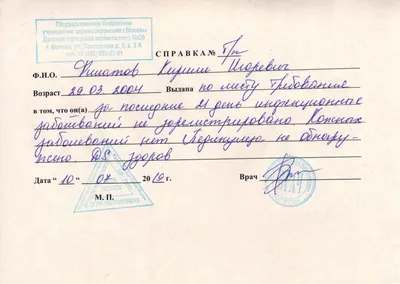 Государственное бюджетное
учреждение здравоохранения г. Москвы
Детская городская поликлиника №
г. Москва, ул.
СПРАВКА № Б/н
Ф.И.О. Кирилл Игоревич
Возраст 29.03.2004 Выдана по месту требования
в том, что он(а) за последние 21 день инфекционных
заболеваний не зарегистрировано. Кожных
заболеваний нет. Педикулез не обнару-
жено. DS здоров
Дата "10" 07 2019 г. Врач
М. П.